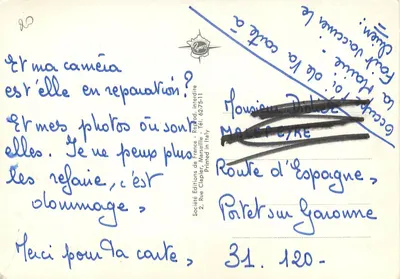 20
Et ma caméra
est'elle en reparation?
Et mes photos où sont
elles. Je ne peux plus
les refaire, c'est
dommage,
Merci pour la carte,
Société Éditions de France - Reprod. Interdite
2, Rue Clapier, Marseille - Tél. 62-75-11
Printed in Italy
de la carte à
fait vacciner le
chien.
Monsieur
Route d'Espagne,
Portet sur Garonne
31.120-